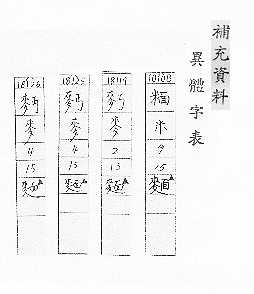 補充資料
異體字表
糆
米
9
15
麵▲
18119
麥
2
13
麵▲
18125
麪
麥
4
15
麵▲
18126
麥
4
15
麵▲